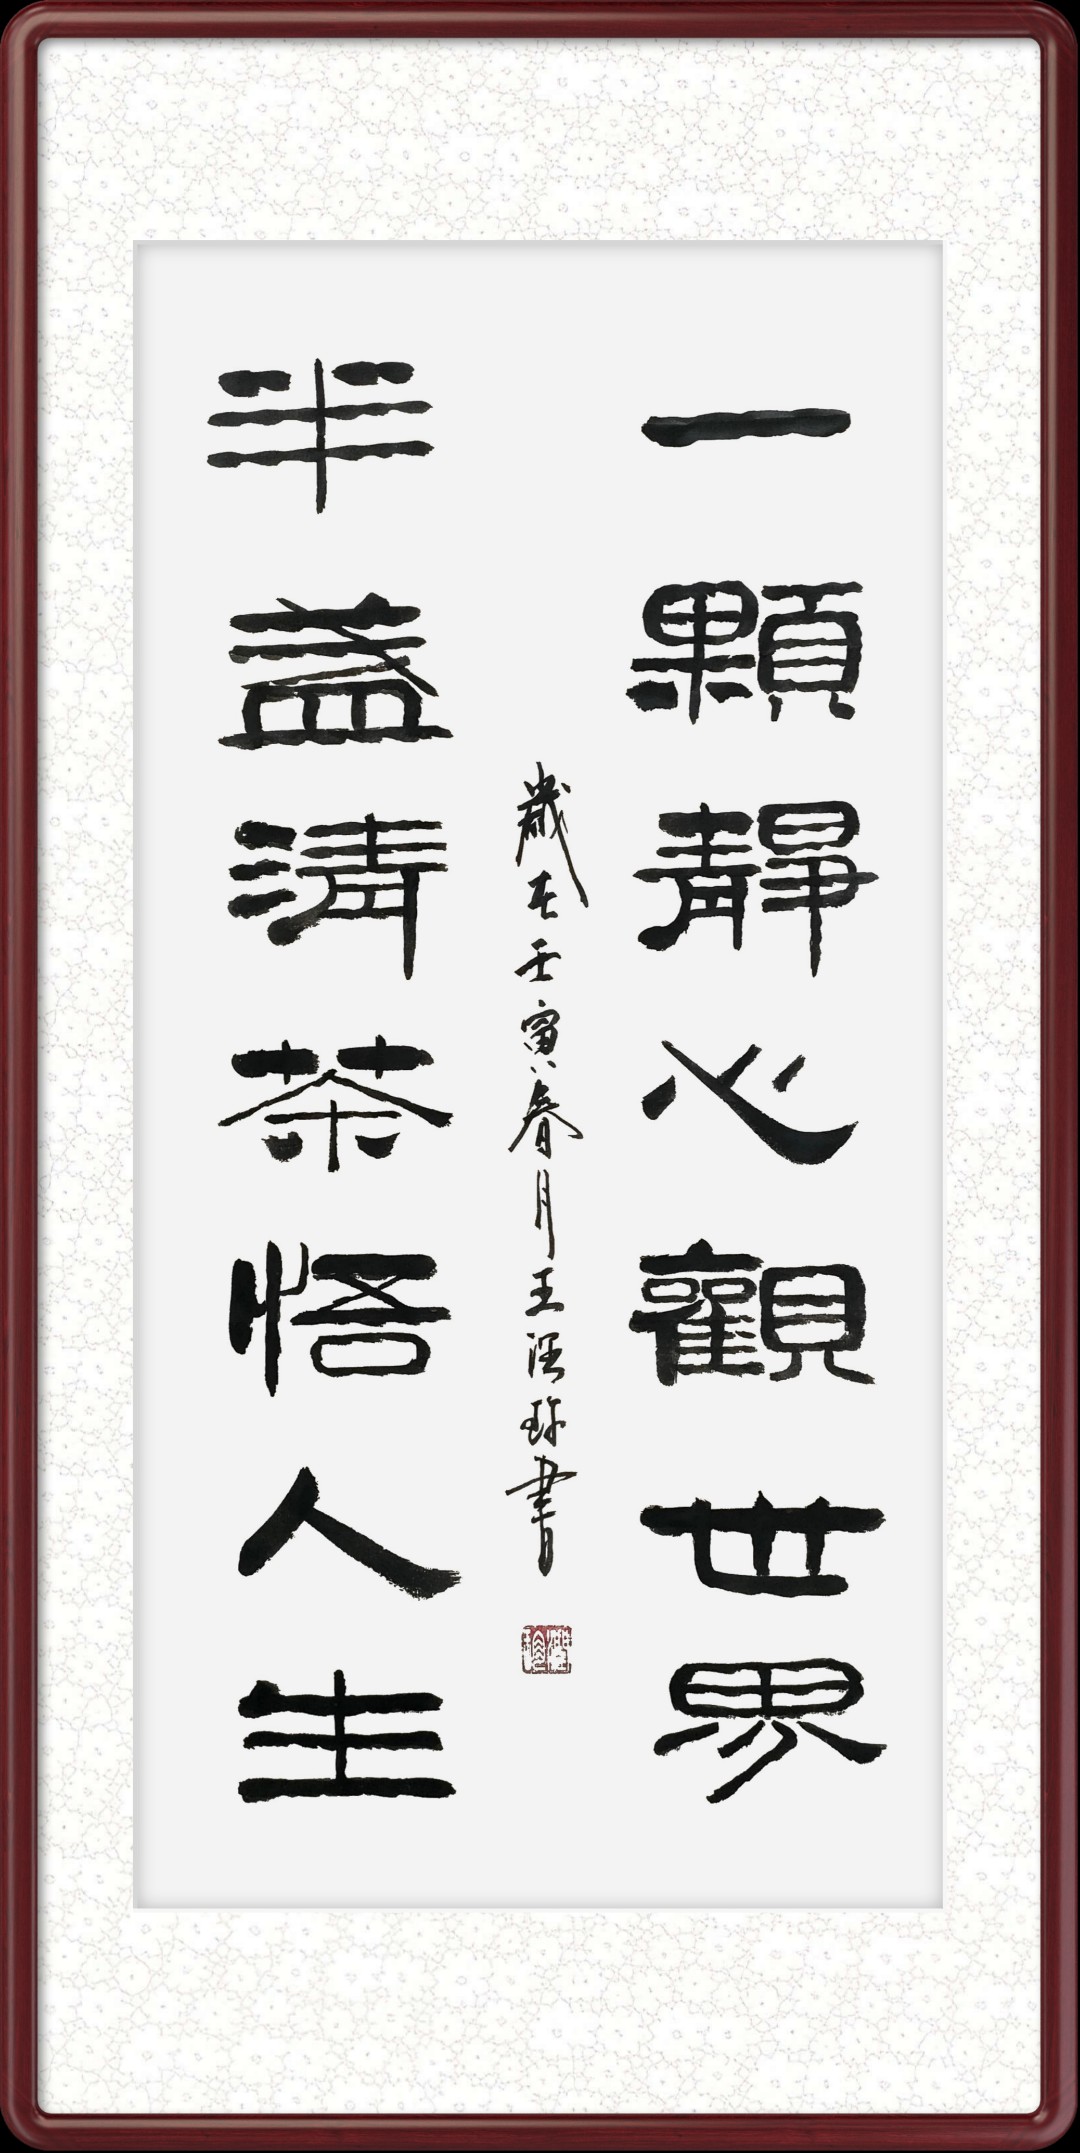 一顆靜心觀世界
半盞清茶悟人生
歲在壬寅春月王涇珍書